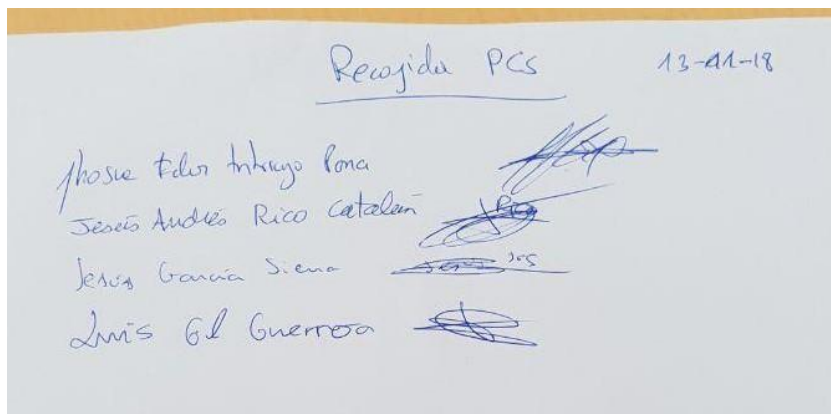 Recogida PCs 13-11-18
Jhosue Eder Intriago
Jesús Andrés Rico Catalán
Jesús García Sierra
Luis Gil Guerrero